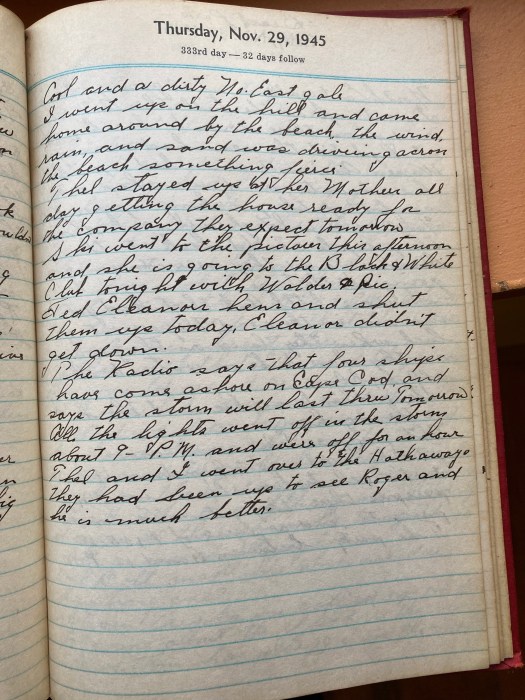 Thursday, Nov. 29, 1945
333rd day — 32 days follow
Cool and a dirty No. East gale
I went up on the hill and came
home around by the beach, the wind,
rain, and sand was driving across
the beach something fierce.
Thel stayed up at her Mothers all
day getting the house ready for
the company they expect tomorrow
Shi went to the picture this afternoon
and she is going to the Black & White
Club tonight with Walder &
Fed Eleanors hens and shut
them up today, Eleanor didn't
get down.
The Radio says that four ships
have come ashore on Cape Cod, and
says the storm will last thru Tomorrow.
All the lights went off in the storm
about 9- P.M. and were off for an hour
Thel and I went over to the Hathaways
they had been up to see Roger and
he is much better.